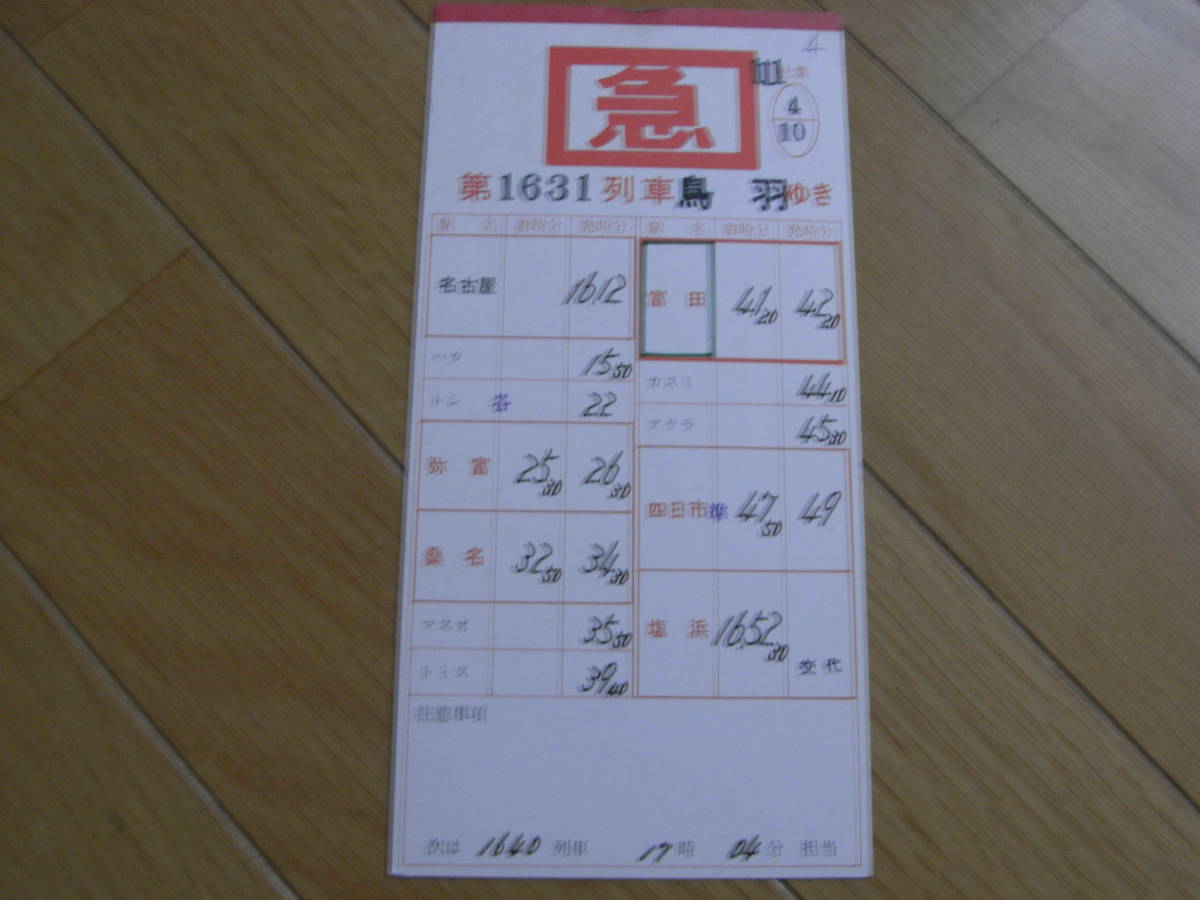 4
急
111 仕業
4
10
第1631列車鳥 羽ゆき
駅 名 着時分 発時分
名古屋 1612
ハタ 15 50
トシ 各 22
弥 富 25 30 26 30
桑 名 32 50 34 30
マスオ 35 50
トミス 39 40
駅 名 着時分 発時分
富 田 41 20 42 20
カスミ 44 10
アクラ 45 30
四日市 準 47 50 49
塩 浜 1652 30 交代
注意事項
次は 1640 列車 17時 04分 担当